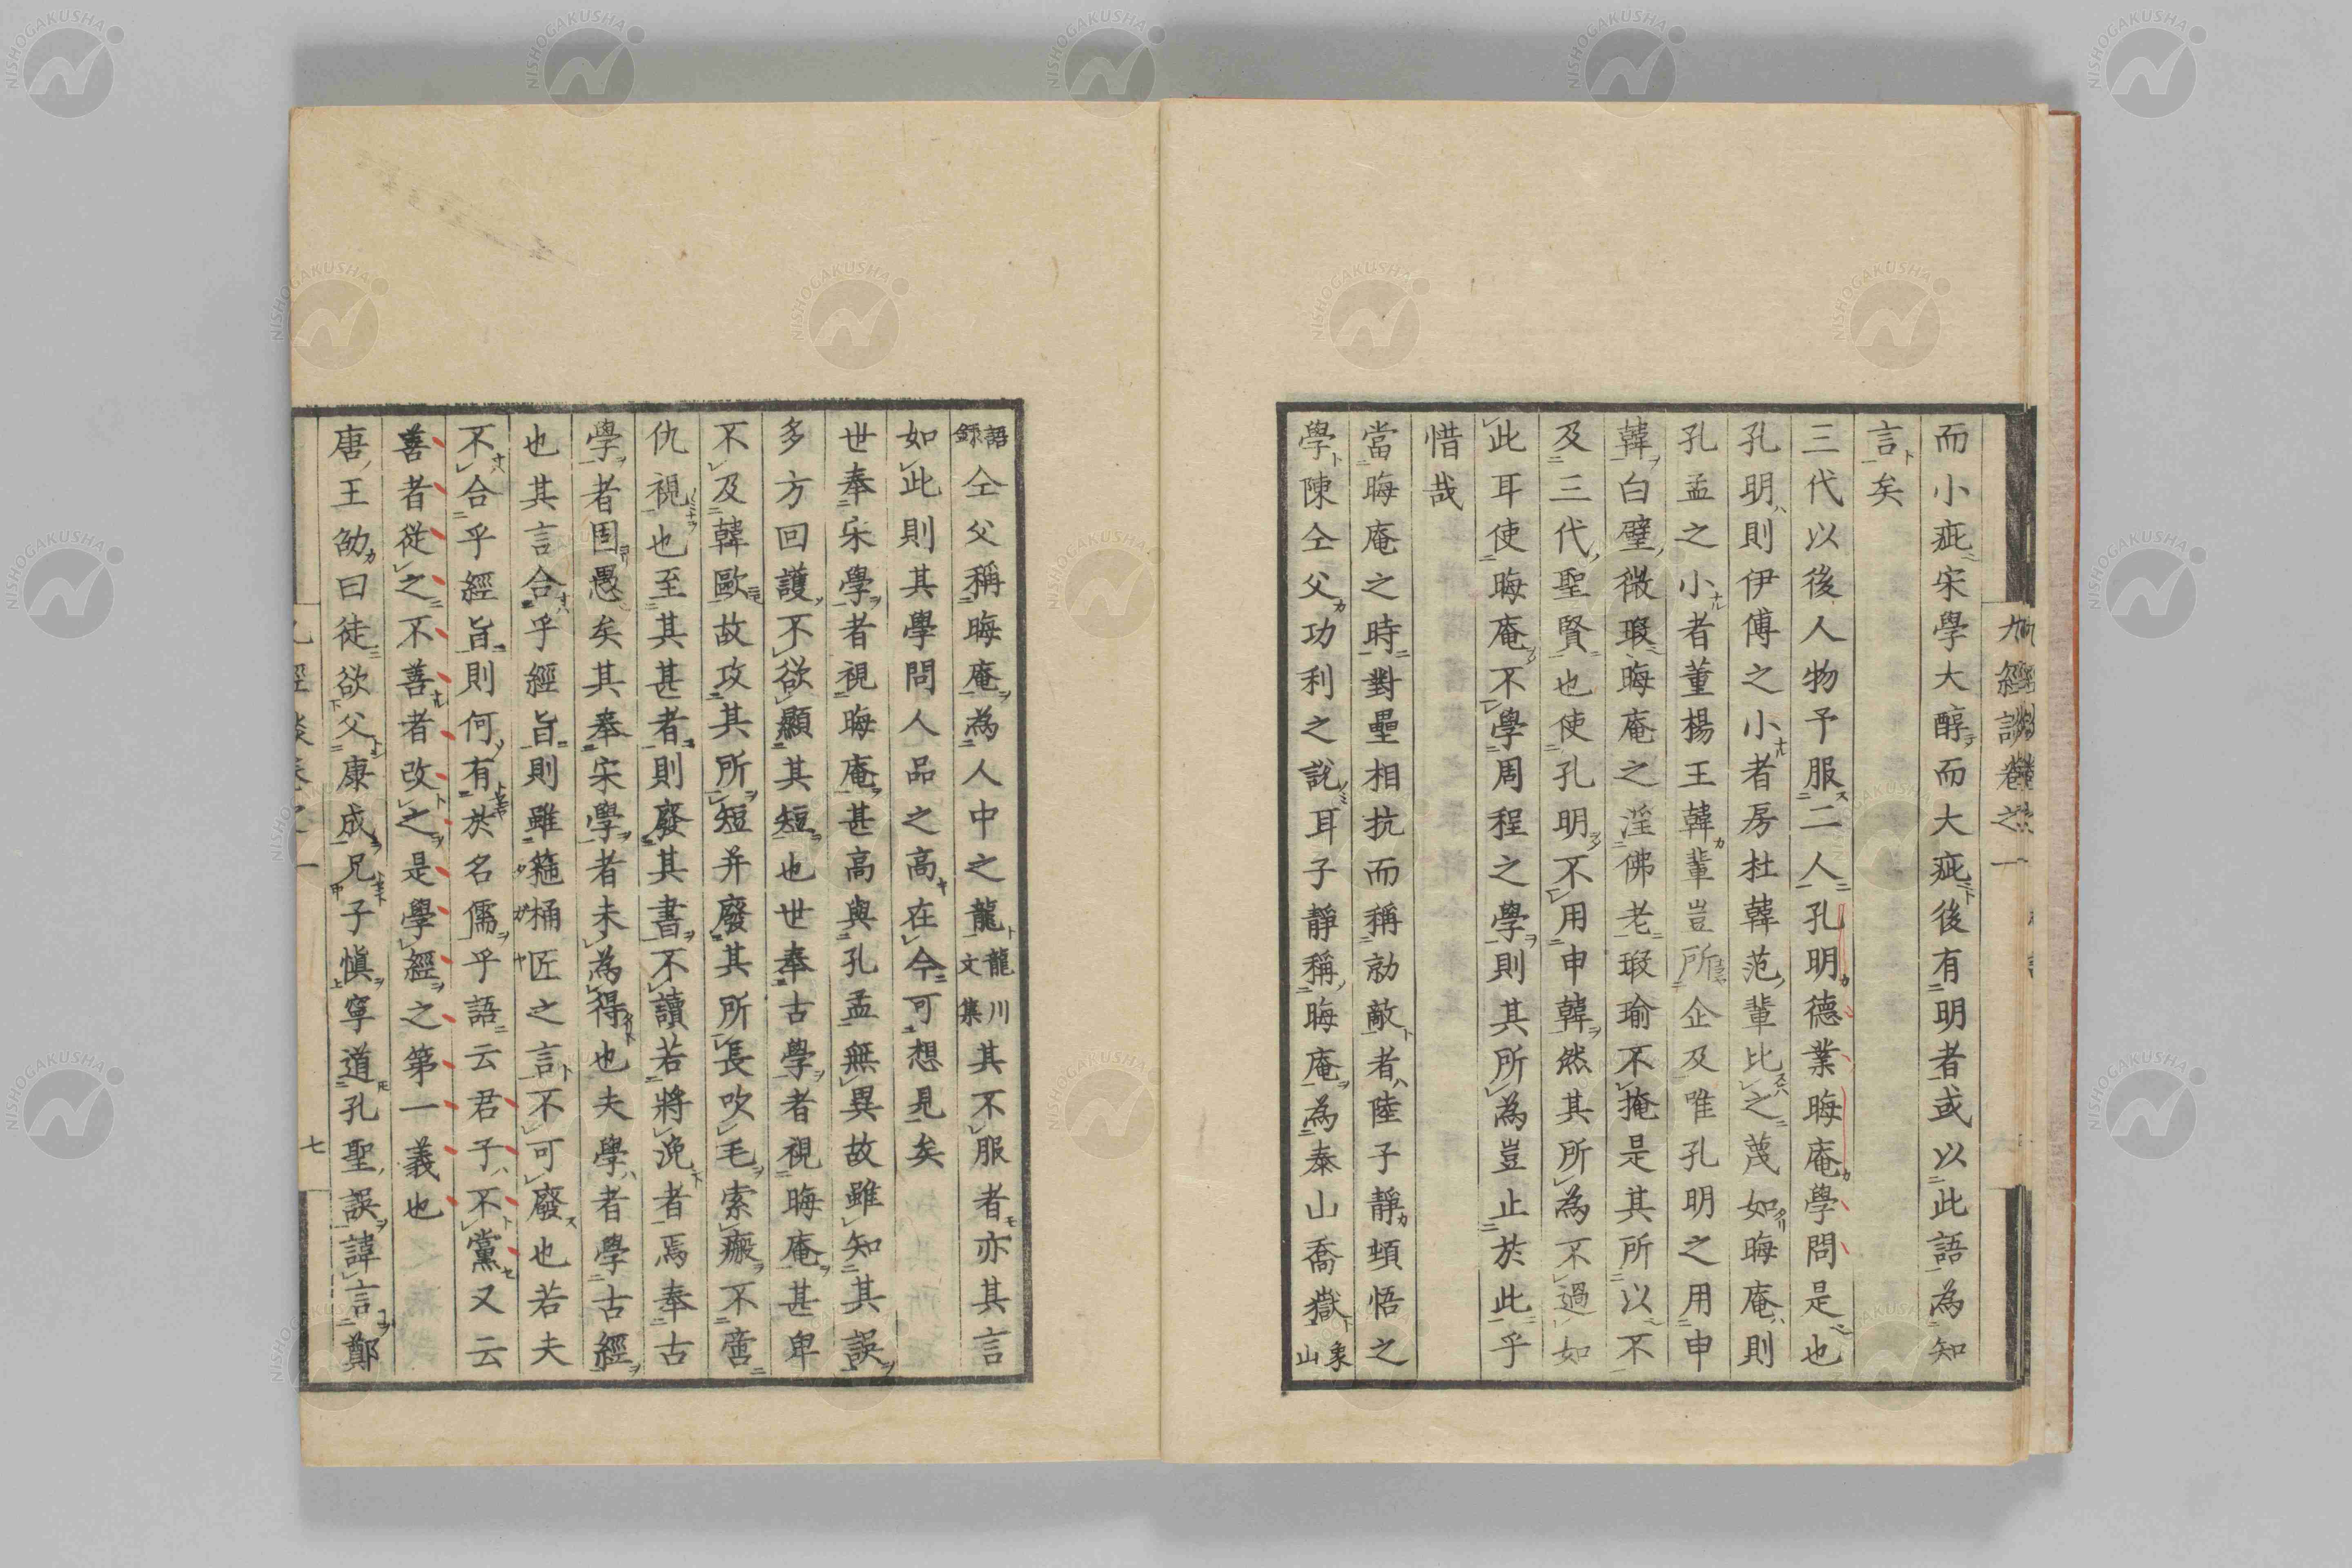 九經談卷之一
而小疵宋學大醇而大疵後有明者或以此語為知
言矣
三代以後人物予服二人孔明德業晦庵學問是也
孔明則伊傅之小者房杜韓范輩比之蔑如晦庵則
孔孟之小者董楊王韓輩豈所企及唯孔明之用申
韓白璧微瑕晦庵之淫佛老瑕瑜不掩是其所以不
及三代聖賢也使孔明不用申韓然其所為不過如
此耳使晦庵不學周程之學則其所為豈止於此乎
惜哉
當晦庵之時對壘相抗而稱勍敵者陸子靜頓悟之
學陳仝父功利之說耳子靜稱晦庵為泰山喬嶽象山
語錄仝父稱晦庵為人中之龍龍川文集其不服者亦其言
如此則其學問人品之高在今可想見矣
世奉宋學者視晦庵甚高與孔孟無異故雖知其誤
多方回護不欲顯其短也世奉古學者視晦庵甚卑
不及韓歐故攻其所短并廢其所長吹毛索瘢不啻
仇視也至其甚者則廢其書不讀若將浼者焉奉古
學者固愚矣其奉宋學者未為得也夫學者學古經
也其言合乎經旨則雖箍桶匠之言不可廢也若夫
不合乎經旨則何有於名儒乎語云君子不黨又云
善者從之不善者改之是學經之第一義也
唐王劭曰徒欲父康成兄子慎寧道孔聖誤諱言鄭
七